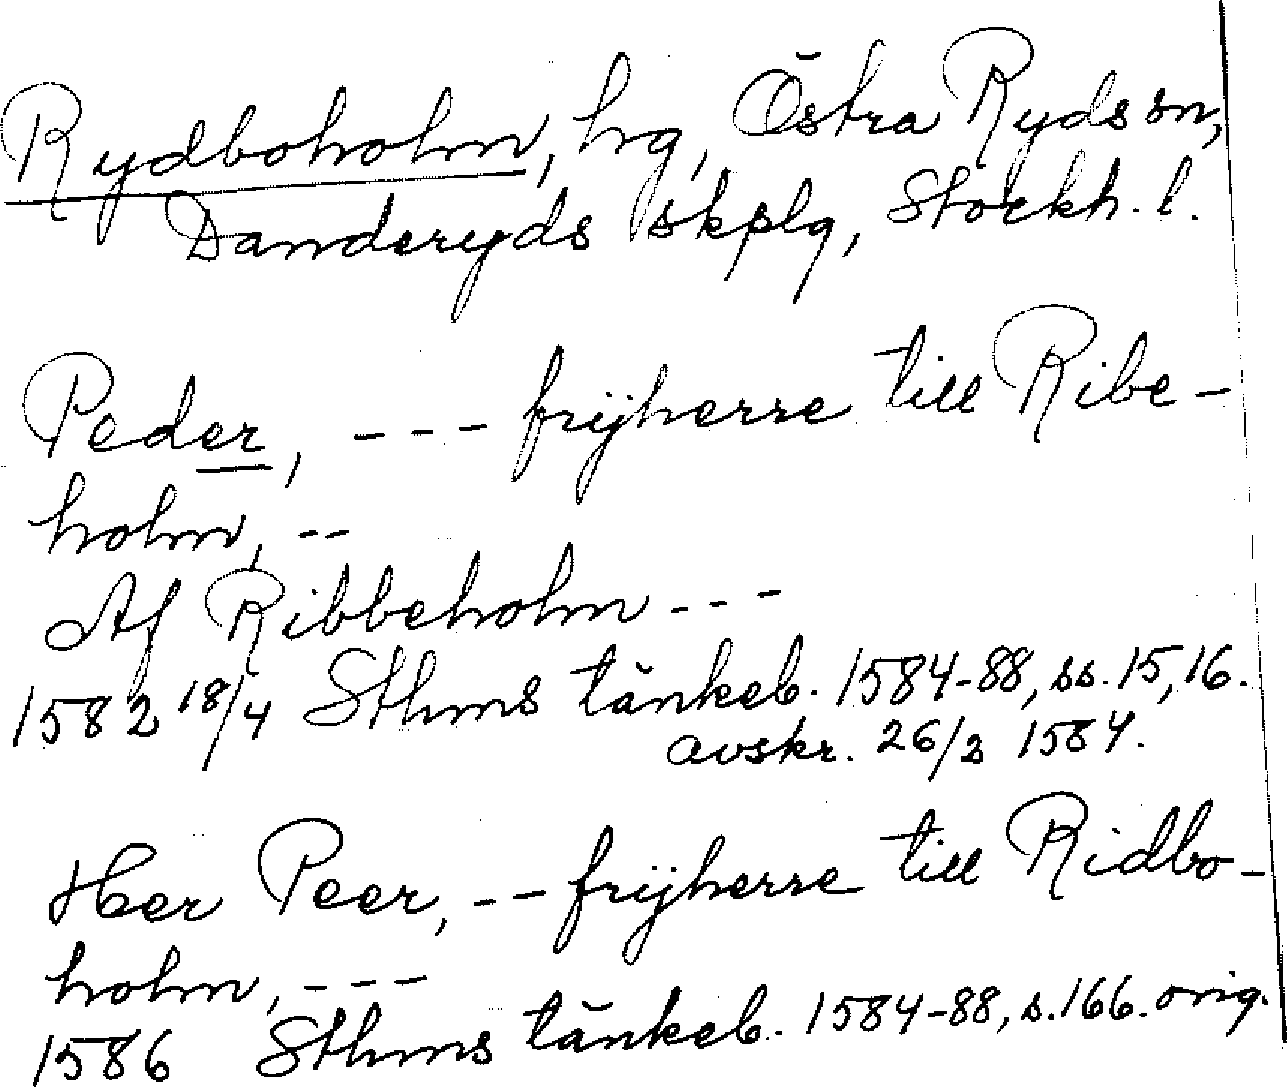 Rydboholm, hg, Östra Ryds sn,
Danderyds skplg, Stockh. l.
Peder, --- frijherre till Ribe-
holm, --
Af Ribbeholm ---
1582 18/4 Sthms tänkeb. 1584-88, ss. 15, 16.
avskr. 26/3 1584.
Her Peer, -- frijherre till Ridbo-
holm, ---
1586 Sthms tänkeb. 1584-88, s. 166. orig.